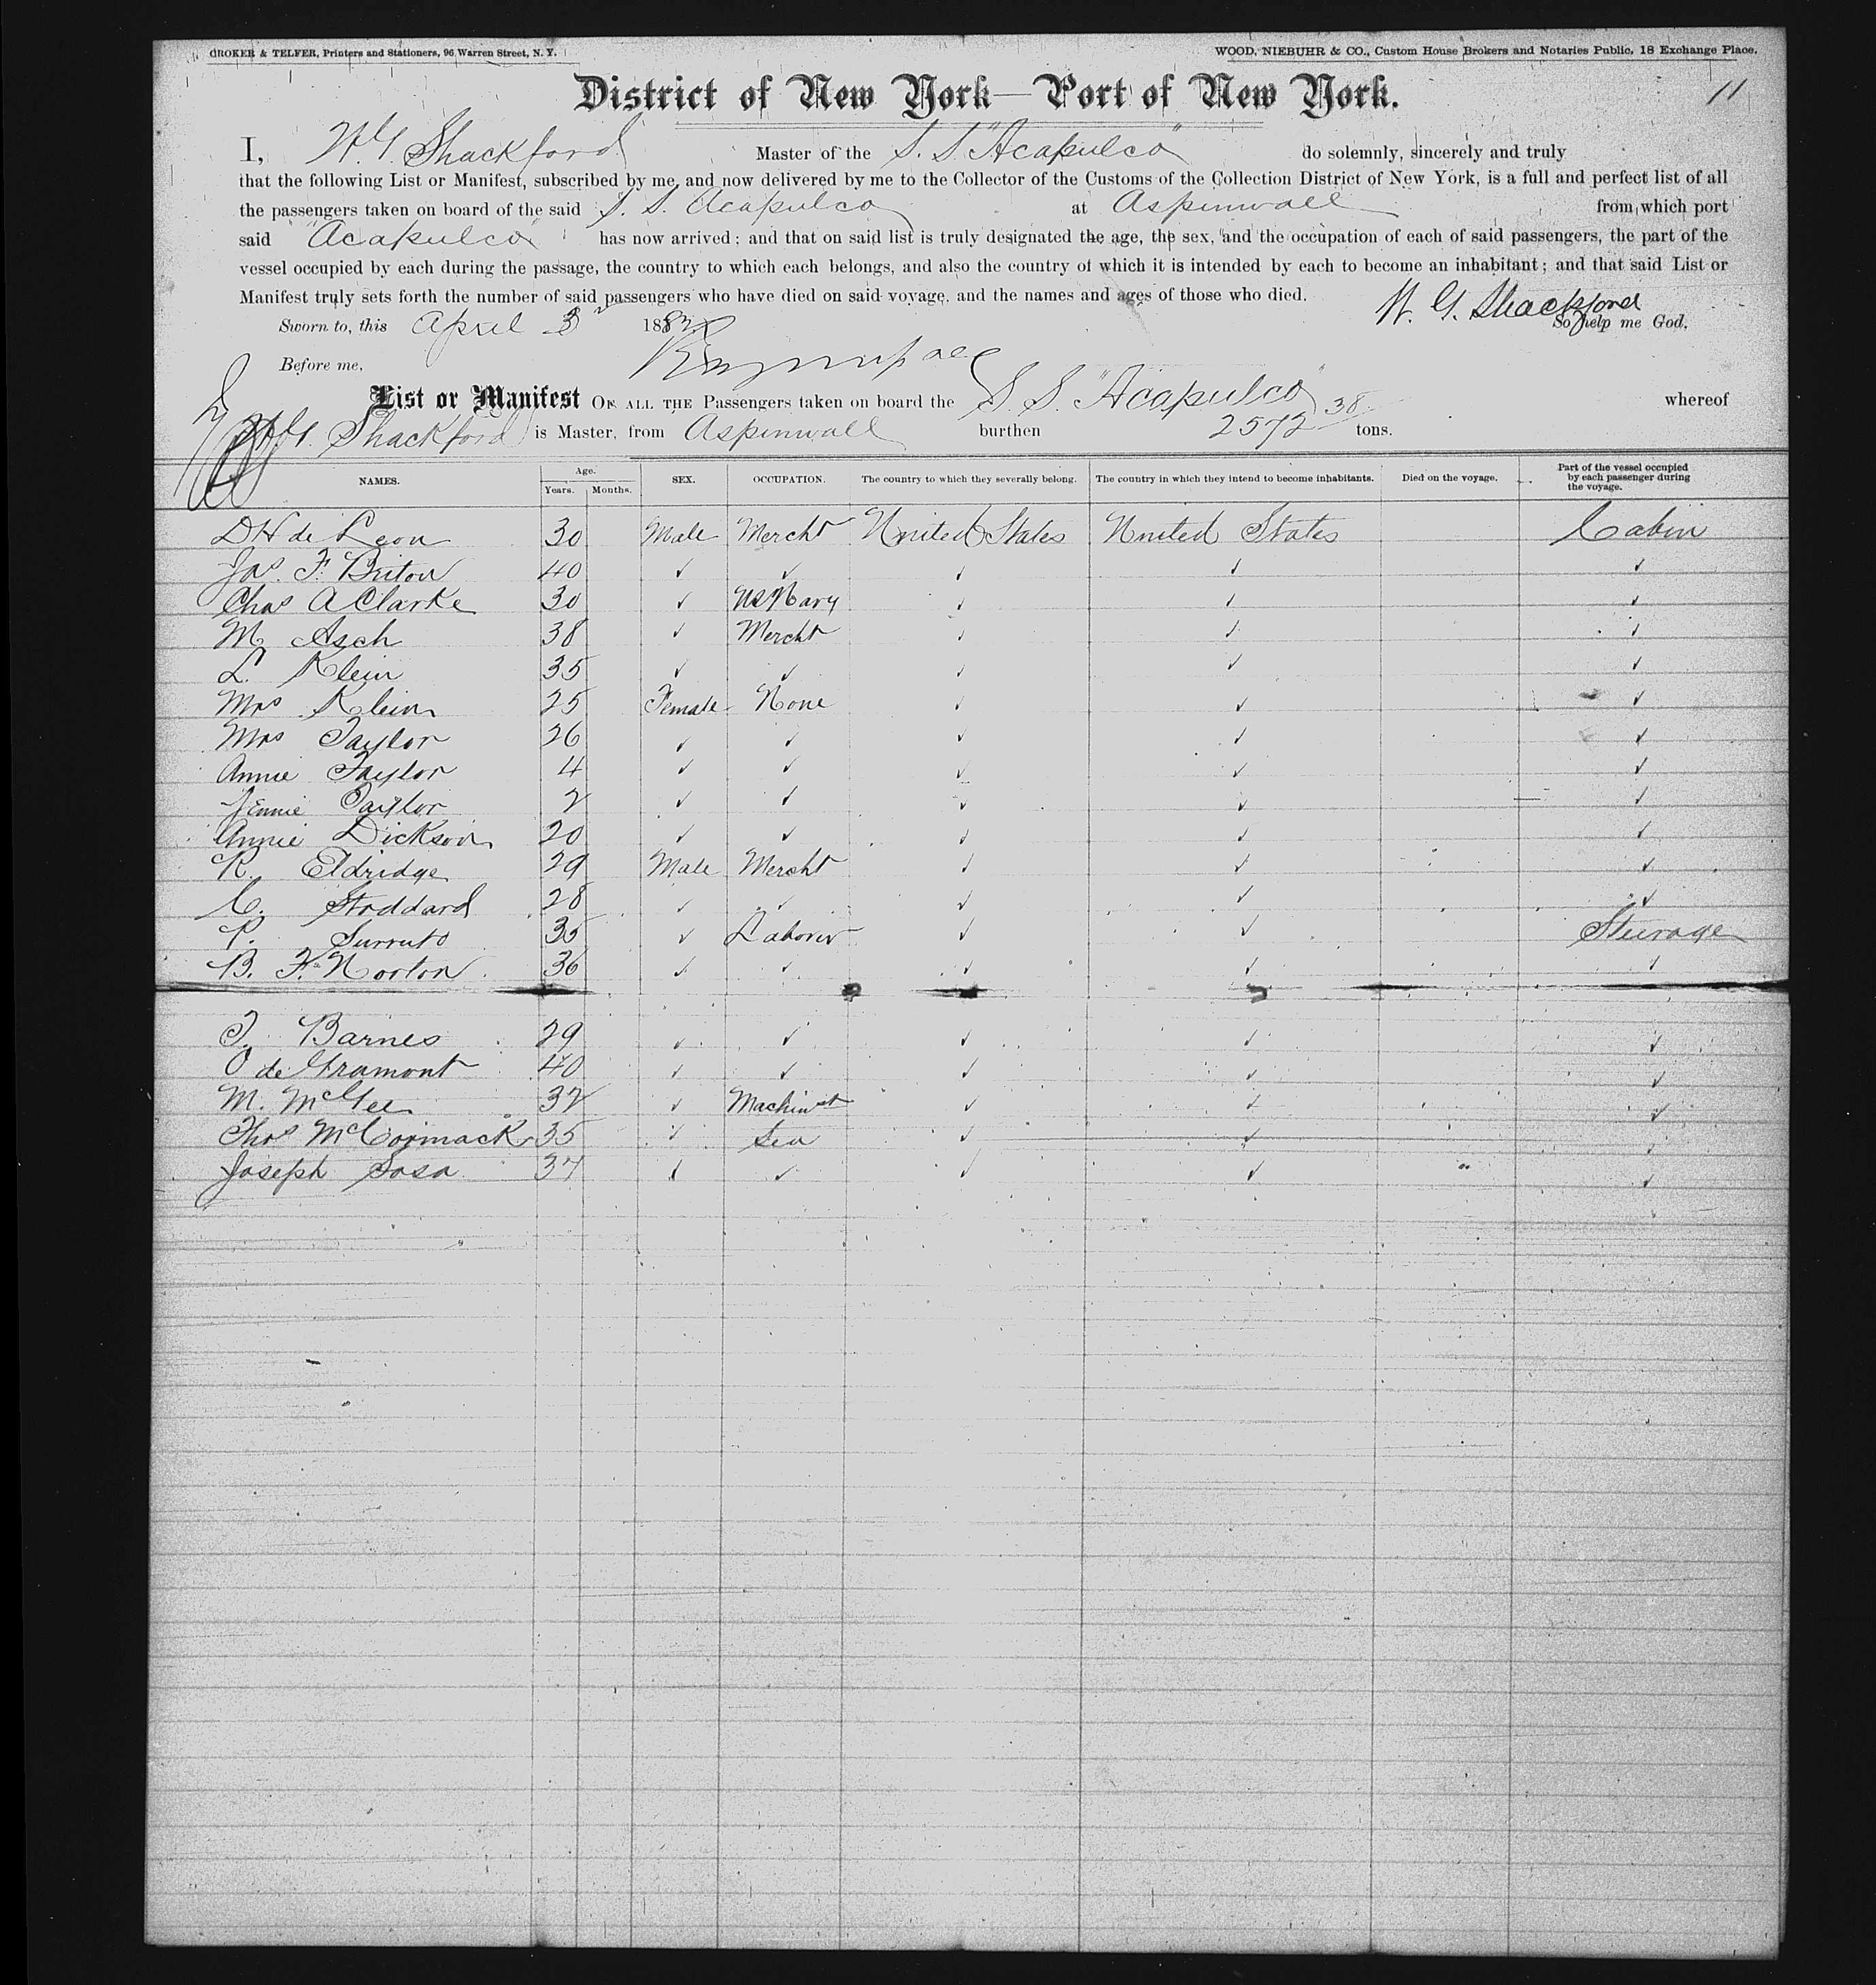 CROKER & TELFER, Printers and Stationers, 96 Warren Street, N. Y. WOOD, NIEBUHR & CO., Custom House Brokers and Notaries Public, 18 Exchange Place.
District of New York—Port of New York. 11
I, W. G. Shackford Master of the S. S. "Acapulco" do solemnly, sincerely and truly
that the following List or Manifest, subscribed by me, and now delivered by me to the Collector of the Customs of the Collection District of New York, is a full and perfect list of all
the passengers taken on board of the said S. S. Acapulco at Aspinwall from which port
said "Acapulco" has now arrived; and that on said list is truly designated the age, the sex, and the occupation of each of said passengers, the part of the
vessel occupied by each during the passage, the country to which each belongs, and also the country of which it is intended by each to become an inhabitant; and that said List or
Manifest truly sets forth the number of said passengers who have died on said voyage, and the names and ages of those who died. W. G. Shackford
Sworn to, this April 3 188 So help me God.
Before me,
List or Manifest OF ALL THE Passengers taken on board the S. S. "Acapulco" whereof
W. G. Shackford is Master, from Aspinwall burthen 2572 38 tons.
NAMES. Age. Years. Months. SEX. OCCUPATION. The country to which they severally belong. The country in which they intend to become inhabitants. Died on the voyage. Part of the vessel occupied by each passenger during the voyage.
D H de Leon 30 Male Mercht United States United States Cabin
Jas. F. Briton 40 ✓ ✓ ✓ ✓ ✓
Chas A Clarke 30 ✓ US Navy ✓ ✓ ✓
M. Asch 38 ✓ Mercht ✓ ✓ ✓
L. Klein 35 ✓ ✓ ✓ ✓ ✓
Mrs Klein 25 Female None ✓ ✓ ✓
Mrs Taylor 26 ✓ ✓ ✓ ✓ ✓
Annie Taylor 4 ✓ ✓ ✓ ✓ ✓
Jennie Taylor 2 ✓ ✓ ✓ ✓ ✓
Annie Dickson 20 ✓ ✓ ✓ ✓ ✓
R. Eldridge 29 Male Mercht ✓ ✓ ✓
C. Stoddard 28 ✓ ✓ ✓ ✓ ✓
P. 35 ✓ Laborer ✓ ✓ Steerage
B. F. Norton 36 ✓ ✓ ✓ ✓ ✓
T. Barnes 29 ✓ ✓ ✓ ✓ ✓
O de Gramont 40 ✓ ✓ ✓ ✓ ✓
M. McGee 32 ✓ Machinst ✓ ✓ ✓
Thos McCormack 35 ✓ Sea ✓ ✓ ✓
Joseph Sosa 37 ✓ ✓ ✓ ✓ ✓